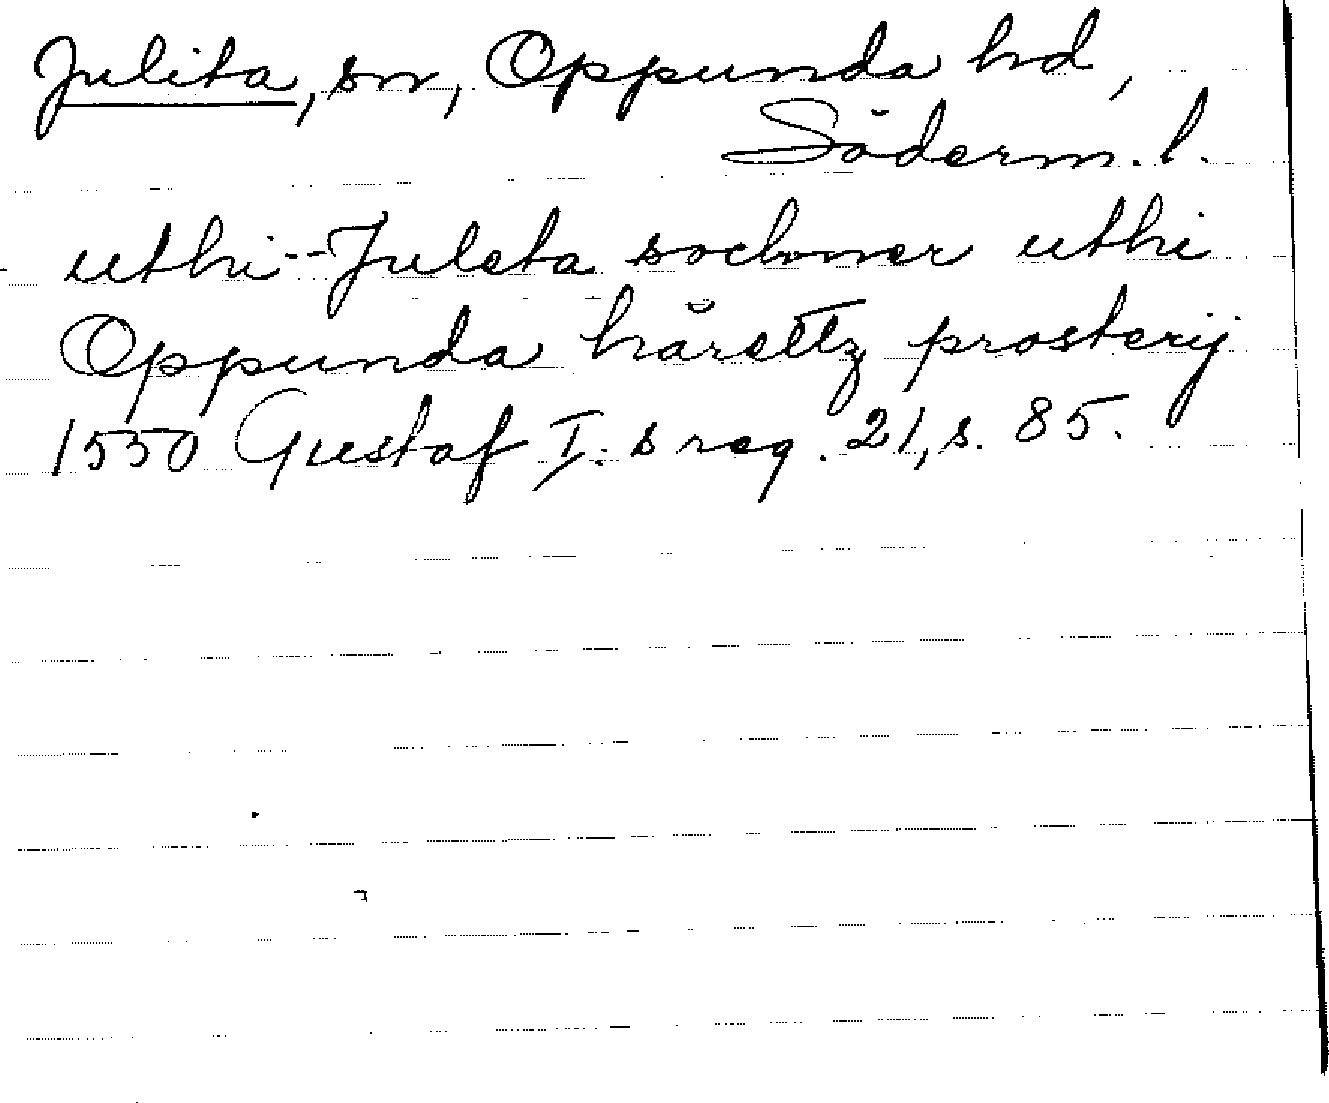 Julita, sn, Oppunda hd,
Söderm. l.
uthi -- Juleta sochner uthi
Oppunda härettz prosterij
1550 Gustaf I:s reg. 21, s. 85.